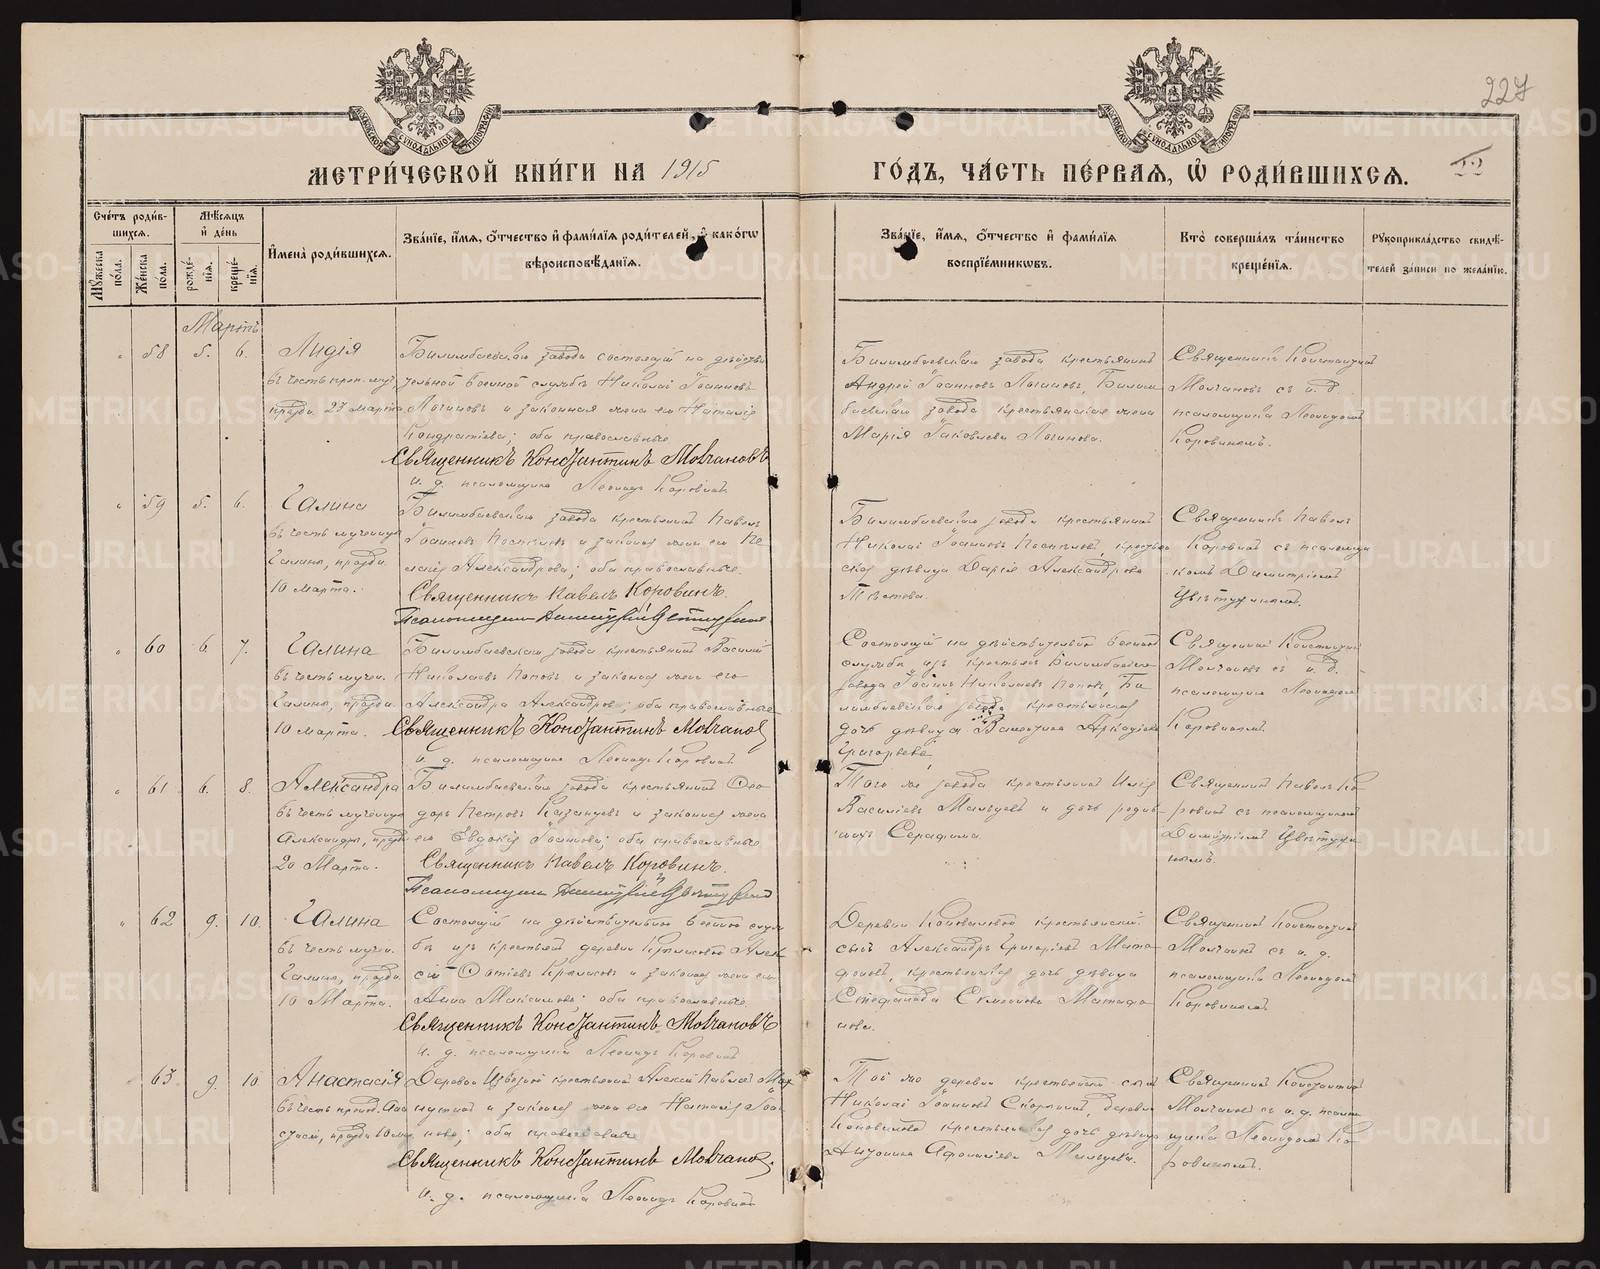 227
МЕТРИ́ЧЕСКОЙ КНИ́ГИ НА 1915 ГО́ДЪ, ЧА́СТЬ ПЕ́РВАЯ, Ѡ РОДИ́ВШИХСЯ.
Сче́тъ роди́в-
шихся.
Мѣ́сяцъ
и҆ де́нь
И҆мена̀ роди́вшихся.
Зва́нїе, и҆́мя, ѻ҆́тчество и҆ фами́лїя роди́телей, и҆ како́гѡ
вѣроисповѣ́данїя.
Зва́нїе, и҆́мя, ѻ҆́тчество и҆ фами́лїя
воспрїе́мникѡвъ.
Кто̀ соверша́лъ та́инство
креще́нїя.
Рꙋкоприкла́дство свидѣ́-
телей за́писи по жела́нїю.
Мꙋ́жеска
по́ла.
Же́нска
по́ла.
рожде́-
нїя.
креще́-
нїя.
Мартъ
58 5. 6. Лидія
въ честь преп. муч.
празд. 27 марта
Билимбаевскаго завода состоящій на дѣйстви
тельной военной службѣ Николай Іоанновъ
Логиновъ и законная жена его Наталія
Кондратіева; оба православные
Священникъ Константинъ Молчановъ
и. д. псаломщика Леонидъ Коровинъ
Билимбаевскаго завода крестьянинъ
Андрей Іоанновъ Логиновъ, Билим
баевскаго завода крестьянская жена
Марія Іаковлева Логинова.
Священникъ Константинъ
Молчановъ съ и. д.
псаломщика Леонидомъ
Коровинымъ.
59 5. 6. Галина
въ честь мученицы
Галины, празд.
10 марта.
Билимбаевскаго завода крестьянинъ Павелъ
Іоанновъ и законная жена его Пе
лагія Александрова; оба православные
Священникъ Павелъ Коровинъ.
Псаломщикъ Димитрій Цвѣтухинъ
Билимбаевскаго завода крестьянинъ
Николай Іоанновъ крестьян
ская дѣвица Дарія Александрова
Священникъ Павелъ
Коровинъ съ псаломщи
комъ Димитріемъ
Цвѣтухинымъ.
60 6. 7. Галина
въ честь мучен.
Галины, празд.
10 марта.
Билимбаевскаго завода крестьянинъ Василій
Николаевъ Поповъ и законная жена его
Александра Александрова; оба православные
Священникъ Константинъ Молчановъ
и. д. псаломщика Леонидъ Коровинъ
Состоящій на дѣйствительной военной
службѣ изъ крестьянъ Билимбаевска
завода Іоаннъ Николаевъ Поповъ, Би
лимбаевскаго завода крестьянская
дочь дѣвица Валентина Аркадіева
Григорьева
Священникъ Константинъ
Молчановъ съ и. д.
псаломщика Леонидомъ
Коровинымъ.
61 6. 8. Александра
въ честь мученицы
Александры, празд.
20 Марта.
Билимбаевскаго завода крестьянинъ Ѳео
доръ Петровъ Казанцевъ и законная жена
его Евдокія Іоаннова; оба православные
Священникъ Павелъ Коровинъ.
Псаломщикъ Димитрій Цвѣтухинъ
Того же завода крестьянинъ Илія
Василіевъ Мальцевъ и дочь родив
шихъ Серафима
Священникъ Павелъ Ко
ровинъ съ псаломщикомъ
Димитріемъ Цвѣтухи
нымъ.
62 9. 10. Галина
въ честь мучен.
Галины, празд.
10 Марта.
Состоящій на дѣйствительной военной служ
бѣ изъ крестьянъ деревни Крыласовой Алек
сій Крыласовъ и законная жена его
Анна Максимова; оба православные.
Священникъ Константинъ Молчановъ
и. д. псаломщика Леонидъ Коровинъ
Деревни Коноваловой крестьянскій
сынъ Александръ Григоріевъ Мата
фоновъ, крестьянская дочь дѣвица
Стефанида Симеонова Матафо
нова.
Священникъ Константинъ
Молчановъ съ и. д.
псаломщика Леонидомъ
Коровинымъ
63 9. 10 Анастасія
Деревни Извѣздной крестьянинъ Алексій Павловъ
и законная жена его Наталія Іоан
нова; оба православные
Священникъ Константинъ Молчановъ.
и. д. псаломщика Леонидъ Коровинъ
Той же деревни крестьянскій сынъ
Николай Іоанновъ деревни
Коноваловой крестьянская дочь дѣвица
Антонина Мальцева.
Священникъ Константинъ
Молчановъ съ и. д. псалом
щика Леонидомъ Ко
ровинымъ.
METRIKI.GASO-URAL.RU